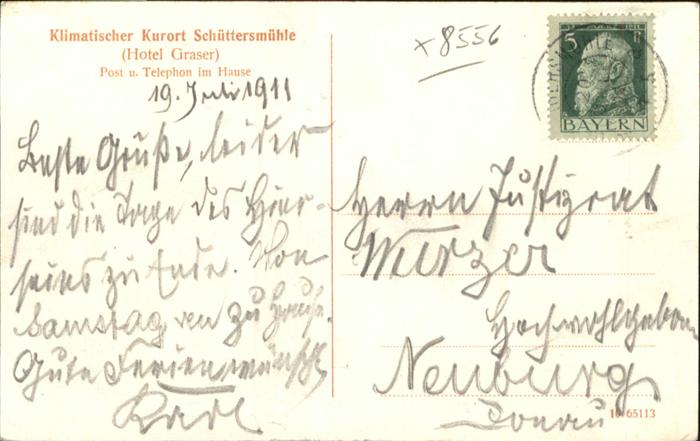 Klimatischer Kurort Schüttersmühle
(Hotel Graser)
Post u. Telephon im Hause
19. Juli 1911
Beste Grüße, leider
sind die Tage des Hier-
seins zu Ende. Von
Samstag an zu Hause.
Gute Ferien wünscht
Karl
x 8556
5
BAYERN
Herrn Justizrat
Wurzer
Hochwohlgeboren
Neuburg
Donau
10 65113